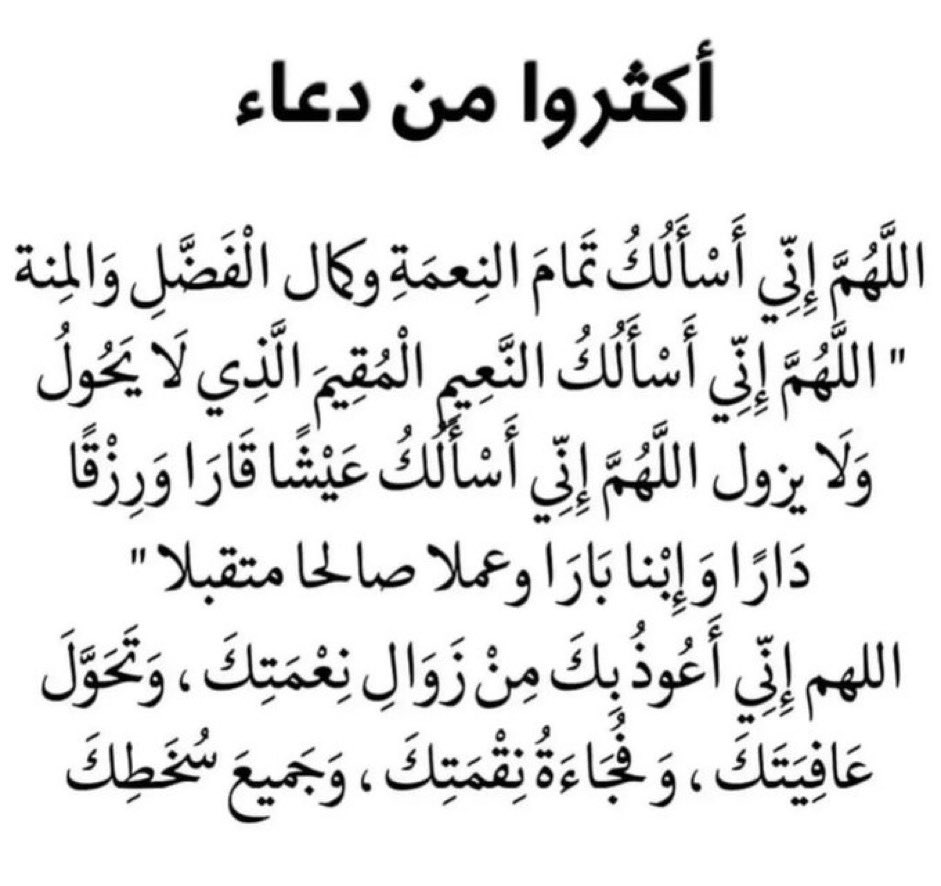 أكثروا من دعاء
اللَّهُمَّ إِنِّي أَسْأَلُكُ تَمَامَ النِعمَةِ وكمال الْفَضَّلِ وَالمِنة
" اللَّهُمَّ إِنِّي أَسْأَلُكُ النَّعِيمِ الْمُقِيمَ الَّذِي لَا يَحُولُ
وَلَا يزول اللَّهُمَّ إِنِّي أَسْأَلُكُ عَيْشًا قَارَا وَرِزْقًا
دَارًا وَإِبْنا بَارَا وعملا صالحا متقبلا "
اللهم إِنِّي أَعُوذُ بِكَ مِنْ زَوَالِ نِعْمَتِكَ ، وَتَحَوَّلَ
عَافِيَتَكَ ، وَفُجَاءَةُ نِقْمَتِكَ ، وَجَمِيعَ سُخَطِكَ